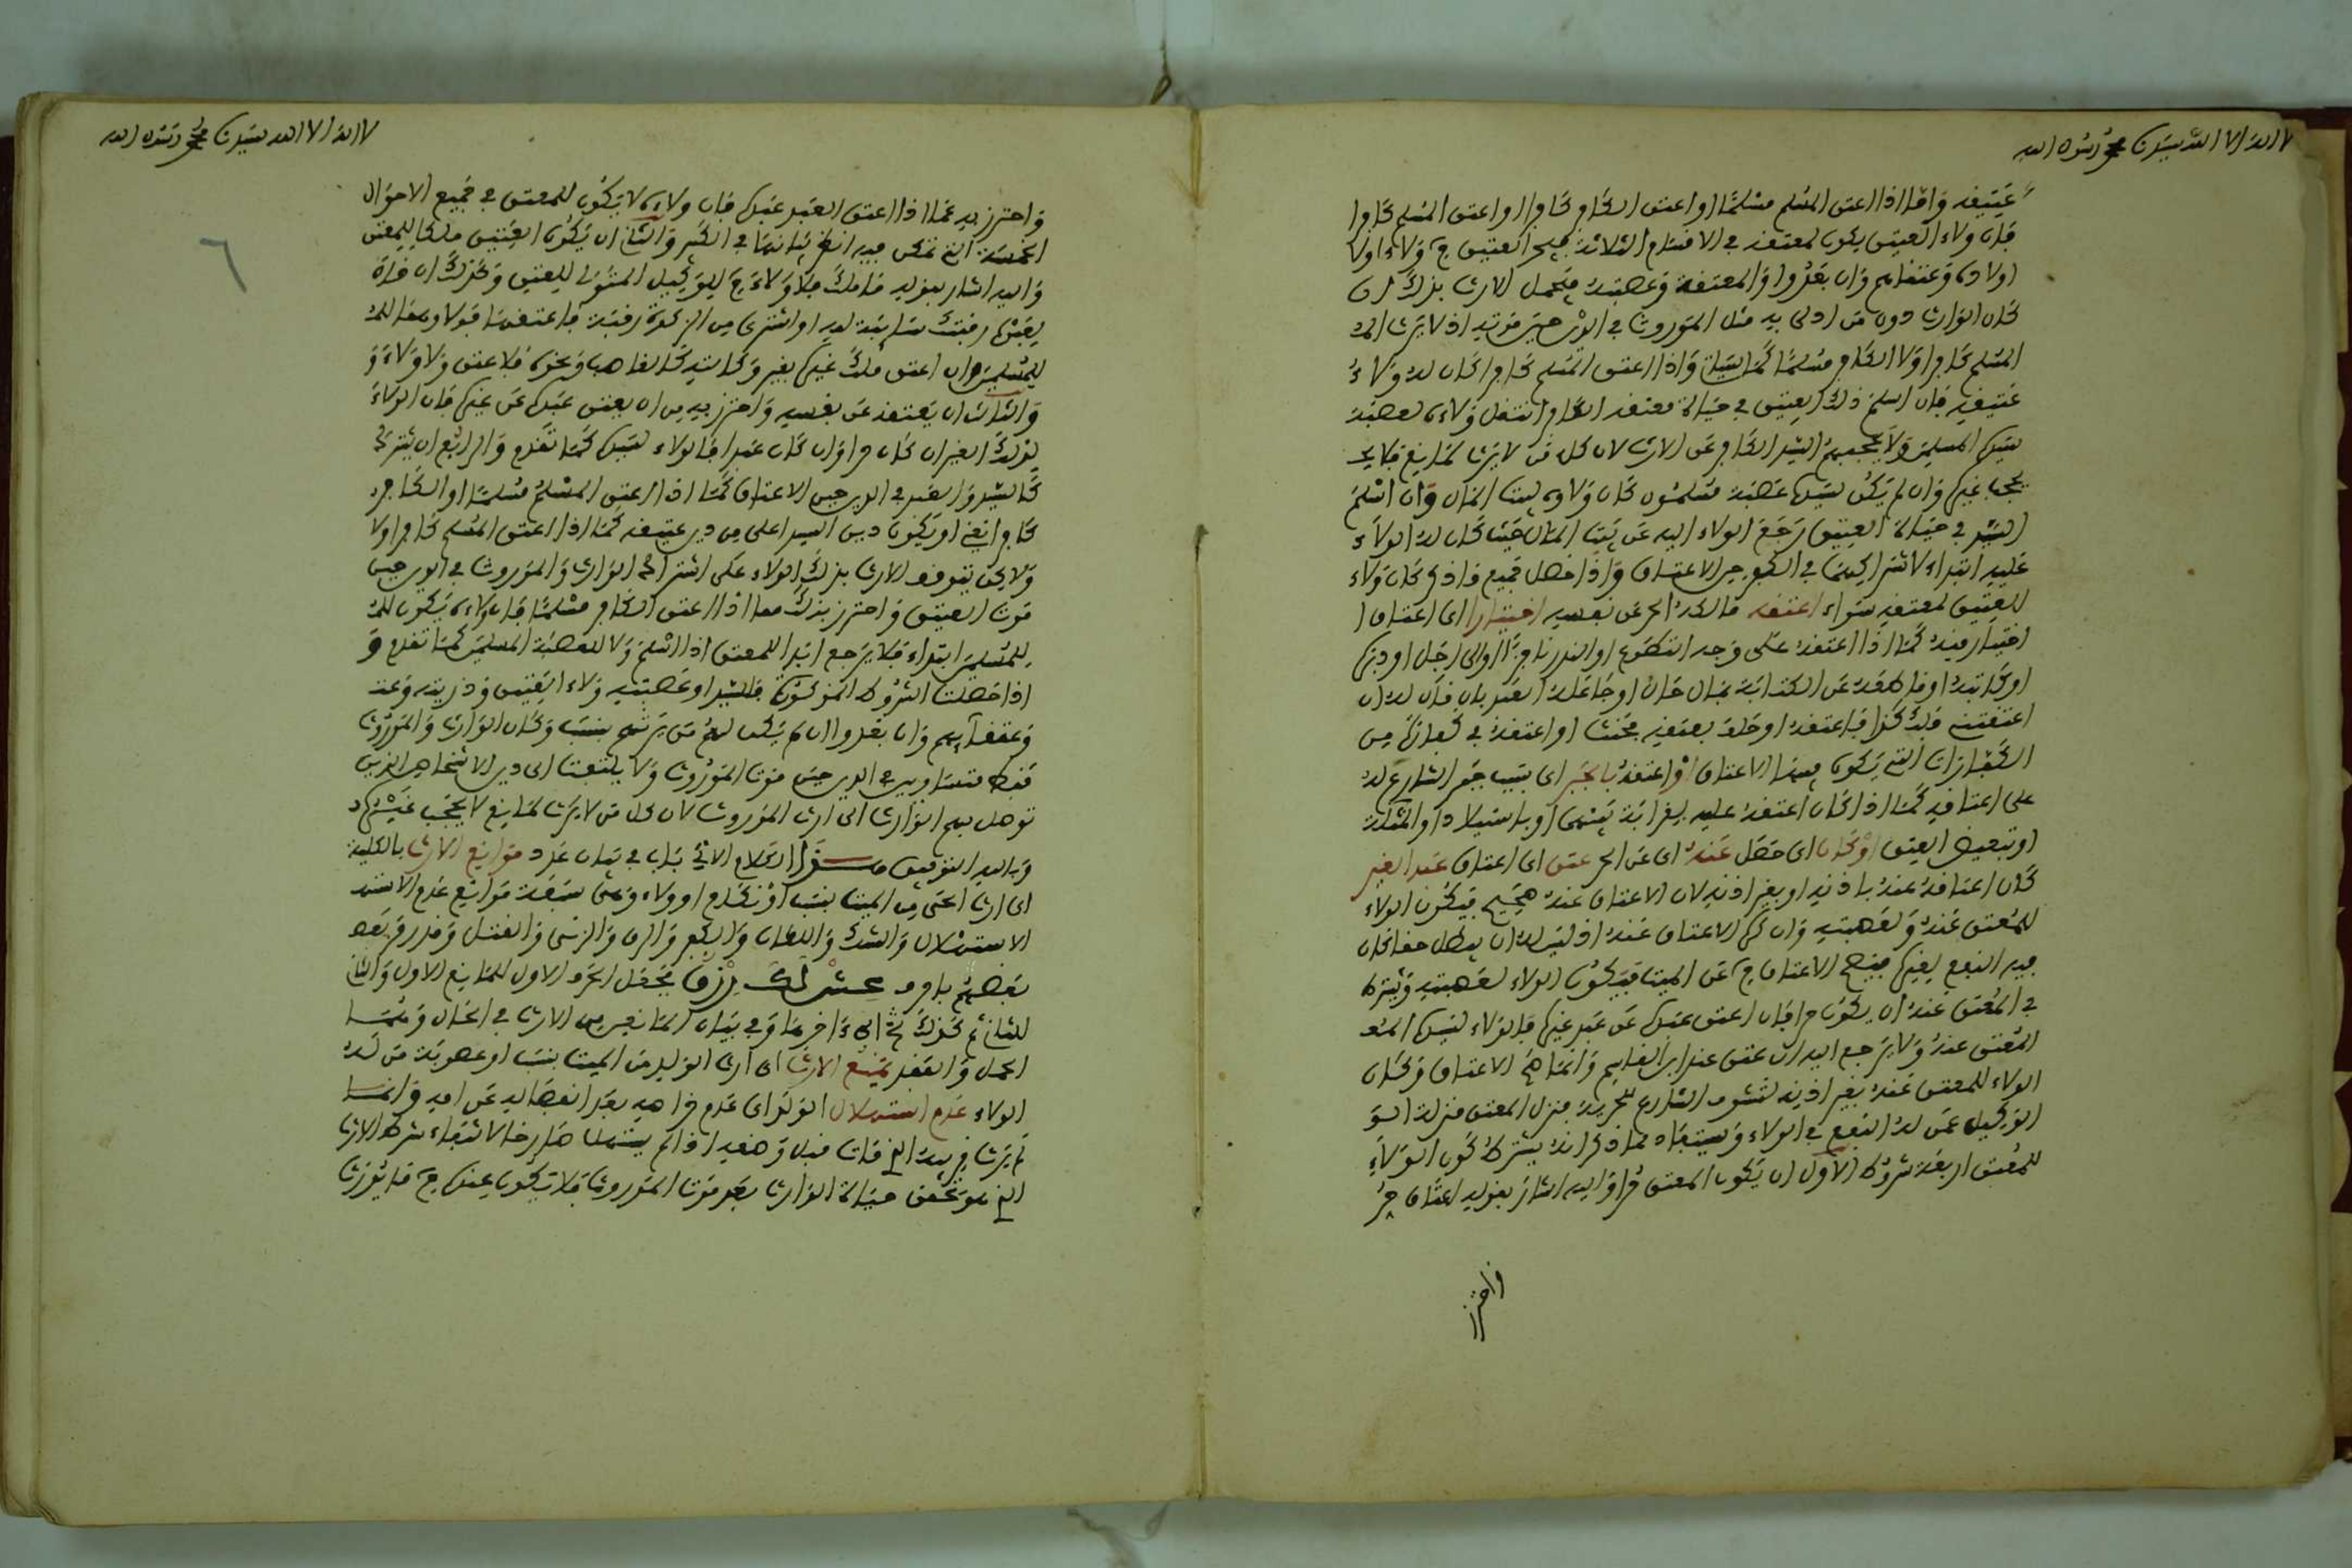 لا اله الا الله سيدنا محمد رسول الله
عتيقه واما اذا اعتق المسلم مسلما او اعتق الكافر كافرا او اعتق المسلم كافرا
فان ولاء العتيق يكون لمعتقه في الاقسام الثلاثة فيجر العتيق ولاء اولا
اولاده وعتقائهم وان بعدوا والمعتقه وعصبته فيحصل الارث بذلك ان
كان الوارث دون من ادلى به مثل الموروث في الدين حين موته اذ لا يرث
المسلم كافرا ولا الكافر مسلما كما سيأتي واذا اعتق المسلم كافرا كان له ولاء
عتيقه فان اسلم ذلك العتيق في حياة معتقه الكافر انتقل ولاءه لعصبة
سيده المسلمين ولا يحجبهم السيد الكافر عن الارث لان كل من لا يرث لمانع فلا يحـ
يحجب غيره وان لم يكن لسيده عصبة مسلمون كان ولاءه لبيت المال وان اسلم
السيد في حياة العتيق رجع الولاء اليه عن بيت المال حيث كان له الولاء
عليه ابتداء لاشتراكهما في الكفر حين الاعتاق واذا حصل جميع ما ذكر كان ولاء
العتيق لمعتقه سواء اعتقه مالكه الحر عن نفسه اختيارا اى اعتاق ا
اختيار منه كما اذا اعتقه على وجه التطوع او النذر ناجزا او الى اجل او دبره
او كاتبه او قاطعه عن الكتابة بمال حال او جاعله العبد بان قال له ان
اعتقتني فلك كذا فاعتقه او حلف بعتقه فحنث او اعتقه في كفارة من
الكفارات التي يكون فيها الاعتاق او اعتقه بالجبر اى بسبب جبر الشارع له
على اعتاقه كما اذا كان اعتقه عليه بقرابة يمنى او باستيلاد او المثلة
او تبعيض العتق او كان اى حصل عنه اى عن الحر عتق اى اعتاق عبد الغير
كان اعتاقه عنه باذنه او بغير اذنه لان الاعتاق عنه صحيح فيكون الولاء
للمعتق عنه ولعصبته وان كره الاعتاق عنه اذ ليس له ان يبطل حقا كان
فيه النفع لغيره فيصح الاعتاق عن الميت فيكون الولاء لعصبته ويشترط
في المعتق عنه ان يكون حرا فان اعتق عبده عن عبد غيره فالولاء لسيده المعـ
المعتق عنه ولا يرجع اليه ان عتق عند ابن القاسم وانما صح الاعتاق وكان
الولاء للمعتق عنه بغير اذنه لتشوف الشارع للحرية فنزل المعتق منزلة الو
الوكيل عمن له النفع في الولاء ويستفاد مما ذكر انه يشترط لكون الولاء
للمعتق اربعة شروط الاول ان يكون المعتق حرا واليه اشار بقوله اعتاق حر
واحترز
لا اله الا الله سيدنا محمد رسول الله
٦
واحترز به عما اذا اعتق العبد عبده فان ولاءه لا يكون للمعتق في جميع الاحوال
الخمسة التي تمكن فيه وانها في الكبير والثاني ان يكون العتيق ملكا للمعتق
واليه اشار بقوله ما ملك فلا ولاء للوكيل المتولى للعتق وكذلك ان قال
لعبده انت سايبة لله او اشترى من الزكاة رقبة فاعتقها فولاءهما
للمسلمين وان اعتق ملك غيره بغير وكالته كالغاصب ونحوه فلا عتق ولا ولاء و
والثالث ان يعتقه عن نفسه واحترز به من ان يعتق عبده عن غيره فان الولاء
لذلك الغير ان كان حرا وان كان عبدا فالولاء لسيده كما تقدم والرابع ان يشترك
السيد والعبد في الدين حين الاعتاق كما اذا اعتق المسلم مسلما او الكافر
كافرا او يكون دين السيد اعلى من دين عتيقه كما اذا اعتق المسلم كافرا ولا
ولا يكن يتوقف الارث بذلك الولاء على اشتراك الوارث والموروث في الدين حين
موت العتيق واحترز بذلك مما اذا اعتق الكافر مسلما فان ولاءه يكون
للمسلمين ابتداء فلا يرجع ابدا للمعتق اذا اسلم ولا لعصبته المسلمين كما تقدم و
اذا حصلت الشروط المذكورة فللسيد او عصبته ولاء العتيق وذريته وعتـ
وعتقائهم وان بعدوا ان لم يكن لهم من يرثهم بنسب وكان الوارث والموروث
فقط متساويين في الدين حين موت الموروث ولا يلتفت الى دين الاشخاص الذين
توصل بهم الوارث الى ارث الموروث لان كل من لا يرث لمانع لا يحجب غيره
وبالله التوفيق هذا الكلام الاتي باب في بيان عدد موانع الارث بالكلية
اى ارث الحي من الميت بنسب او نكاح او ولاء وهي سبعة موانع عدم الاستهـ
الاستهلال والشك واللعان والكفر والرق والزنى والقتل وقد رمز بعضـ
بعضهم بلفظ عش لك رزق فجعل الحرف الاول للمانع الاول والثاني
للثاني ثم كذلك الى اخرها وفي بيان المانعين من الارث في الحال وهما
الحمل والفقد يمنع الارث اى ارث الوليد من الميت بنسب او عصوبة من له
الولاء عدم استهلال الولد اى عدم صراخه بعد انفصاله عن امه وانما
لم يرث قريبه الذي مات قبل وضعه اذا لم يستهل صارخا لانتفاء شرط الارث
الذي هو تحقق حياة الوارث بعد موت الموروث فلا يكون عنده ما يورث